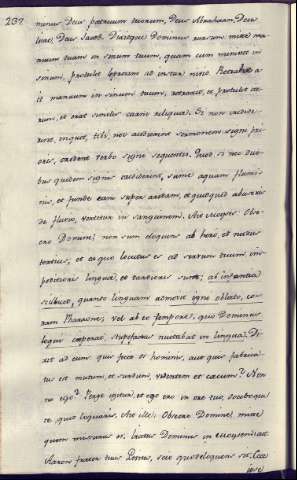 232
minus Deus patrum tuorum, Deus Abraham, Deus
Isaac, Deus Jacob. Dixitque Dominus rursum mitte ma-
num tuam in sinum tuum, quam cum misisset in
sinum, protulit leprosam ad instar nivis. Retrahe a
it manum in sinum tuum, retraxit, et protulit ite-
rum, et erat similis carni reliquæ. Si non credide-
rint, inquit, tibi, nec audierint sermonem signi pri-
oris, credent verbo signi sequentis. Quod si nec duo-
bus quidem signis crediderint, sume aquam flumi-
nis, et funde eam super aridam, et quidquid hauseris
de fluvio, vertetur in sanguinem. Ait Moyses: Obse-
cro Domine, non sum eloquens ab heri, et nudius
tertius, et ex quo locutus es ad servum tuum im-
peditioris linguæ, et tardioris sum; ab infantia
scilicet, quando linguam admovit igni oblato, co-
ram Pharaone; vel ab eo tempore, quo Dominus
loqui cœperat, stupefactus mutabat in lingua. Di-
xit ad eum quis fecit os hominis, aut quis fabrica-
tus est mutum, et surdum, videntem et cæcum? Non-
ne ego? Perge igitur, et ego ero in ore tuo, docebo que
te, quid loquaris. Ait ille: Obsecro Domine, mitte
quem missurus es: Iratus Dominus in Moysen ait
Aaron frater tuus Levites, scio quod eloquens sit. Ecce
ipse